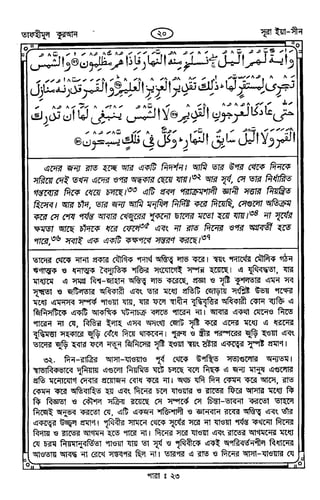 তাফহীমুল কুরআন
২০
সূরা ইয়া-সীন
وَاٰيَةٌ لَّهُمُ الَّيْلُ ۚ نَسْلَخُ مِنْهُ النَّهَارَ فَاِذَا هُمْ مُّظْلِمُوْنَ ۞ وَالشَّمْسُ
تَجْرِىْ لِمُسْتَقَرٍّ لَّهَا ۗ ذٰلِكَ تَقْدِيْرُ الْعَزِيْزِ الْعَلِيْمِ ۞ وَالْقَمَرَ قَدَّرْنٰهُ مَنَازِلَ
حَتّٰى عَادَ كَالْعُرْجُوْنِ الْقَدِيْمِ ۞ لَا الشَّمْسُ يَنْۢبَغِىْ لَهَآ اَنْ تُدْرِكَ
الْقَمَرَ وَلَا الَّيْلُ سَابِقُ النَّهَارِ ۗ وَكُلٌّ فِىْ فَلَكٍ يَّسْبَحُوْنَ ۞
এদের জন্য রাত হচ্ছে আর একটি নিদর্শন। আমি তার উপর থেকে দিনকে
সরিয়ে দেই তখন এদের ওপর অন্ধকার ছেয়ে যায়।৩২ আর সূর্য, সে তার নির্ধারিত
গন্তব্যের দিকে ধেয়ে চলছে।৩৩ এটি প্রবল পরাক্রমশালী জ্ঞানী সত্তার নিয়ন্ত্রিত
হিসেব। আর চাঁদ, তার জন্য আমি মনযিল নির্দিষ্ট করে দিয়েছি, সেগুলো অতিক্রম
করে সে শেষ পর্যন্ত আবার খেজুরের শুকনো ডালের মতো হয়ে যায়।৩৪ না সূর্যের
ক্ষমতা আছে চাঁদকে ধরে ফেলে৩৫ এবং না রাত দিনের ওপর অগ্রবর্তী হতে
পারে,৩৬ সবাই এক একটি কক্ষপথে সন্তরণ করছে।৩৭
তাদের থেকে নানা প্রকার যৌগিক পদার্থ অস্তিত্ব লাভ করে। স্বয়ং পদার্থের মৌলিক গঠন
ঋণাত্মক ও ধনাত্মক বৈদ্যুতিক শক্তির সংযোগেই সম্পন্ন হয়েছে। এ যুথিবদ্ধতা, যার
মাধ্যমে এ সমগ্র বিশ্ব-জাহান অস্তিত্ব লাভ করেছে, প্রজ্ঞা ও সৃষ্টি কুশলতার এমন সব
সূক্ষ্মতা ও জটিলতার অধিকারী এবং তার মধ্যে প্রতিটি জোড়ায় সংশ্লিষ্ট উভয় পক্ষের
মধ্যে এমনসব সম্পর্ক পাওয়া যায়, যার ফলে স্বাধীন বুদ্ধিবৃত্তির অধিকারী কোন ব্যক্তি এ
জিনিসটিকে একটি আকস্মিক ঘটনাচক্র বলতে পারেন না। আবার একথা মেনেও নিতে
পারেন না যে, বিভিন্ন ইলাহ এসব অসংখ্য জোট সৃষ্টি করে এদের মধ্যে এ ধরনের
বুদ্ধিমত্তা সহকারে জুড়ি বেঁধে দিয়ে থাকবেন। পুরুষ ও স্ত্রীর পরস্পরের জুড়ি হওয়া এবং
তাদের জুড়ি হবার ফলে নতুন জিনিসের সৃষ্টি হওয়া স্বয়ং স্রষ্টার একত্বের সুস্পষ্ট প্রমাণ।
৩২. দিন-রাত্রির আসা-যাওয়াও পূর্ব থেকে উপস্থিত সত্যগুলোর অন্যতম।
স্বাভাবিকভাবে দুনিয়ায় এগুলো নিয়মিত ঘটে চলছে বলে নিছক এ জন্য মানুষ এগুলোর
প্রতি মনোযোগ দেবার প্রয়োজন বোধ করে না। অথচ যদি দিন কেমন করে আসে, রাত
কেমন করে অতিবাহিত হয় এবং দিনের চলে যাওয়ার ও রাতের ফিরে আসার মধ্যে কি
কি বিজ্ঞতা ও কৌশল সক্রিয় রয়েছে সে সম্পর্কে সে চিন্তা-ভাবনা করতো তাহলে
নিজেই অনুভব করতো যে, এটি একজন শক্তিশালী ও জ্ঞানবান রবের অস্তিত্ব এবং তাঁর
একত্বের উজ্জ্বল প্রমাণ। পৃথিবীর সামনে থেকে সূর্যের সরে না যাওয়া পর্যন্ত কখনো দিনের
বিদায় ও রাতের আগমন হতে পারে না। দিনের সরে যাওয়া এবং রাতের আগমনের মধ্যে
যে চরম নিয়মানুবর্তিতা পাওয়া যায় তা সূর্য ও পৃথিবীকে একই অপরিবর্তনশীল বিধানের
আওতায় আবদ্ধ না রেখে সম্ভবপর ছিল না। তারপর এ রাত ও দিনের আসা-যাওয়ার যে
পারা : ২৩